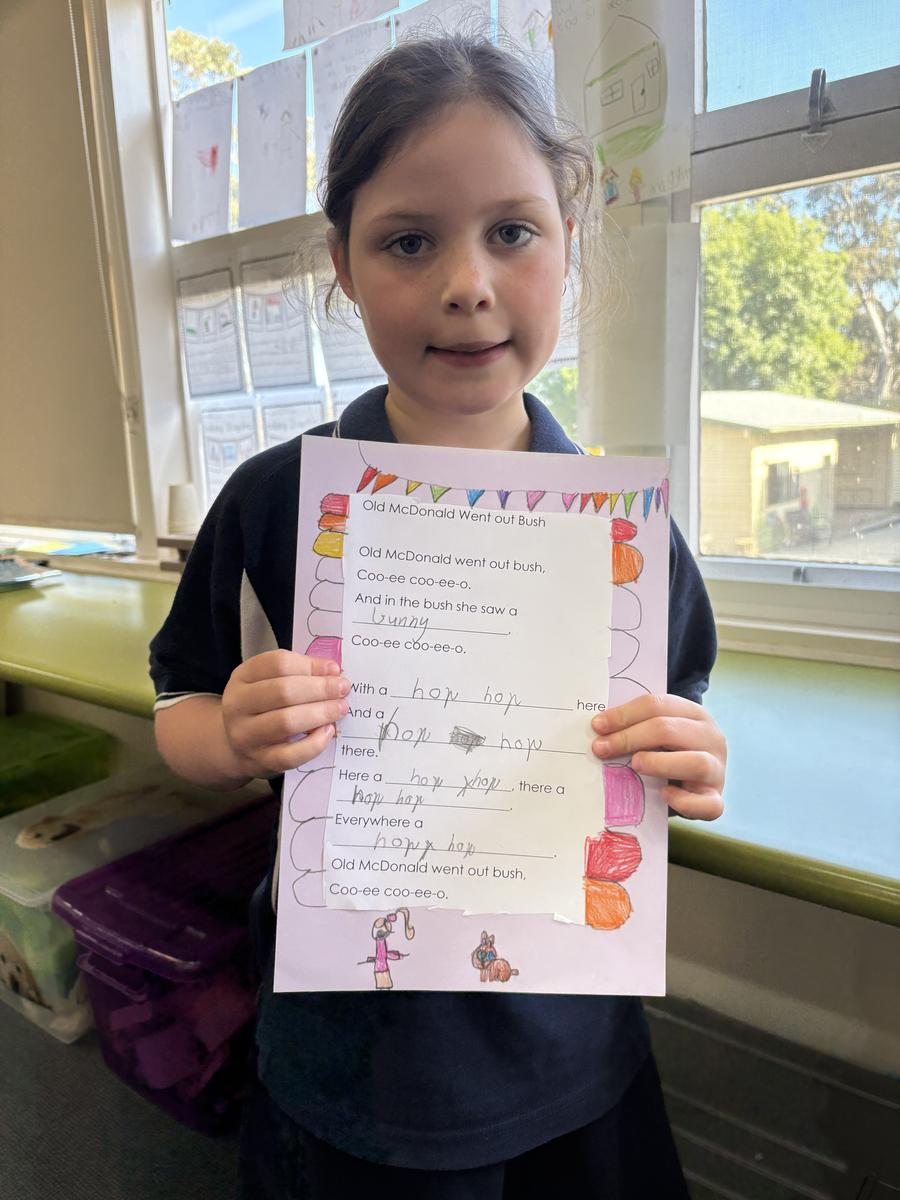 Old McDonald Went out Bush
Old McDonald went out bush,
Coo-ee coo-ee-o.
And in the bush she saw a
bunny.
Coo-ee coo-ee-o.
With a hop hop here
And a
hop hop
there.
Here a hop hop, there a
hop hop.
Everywhere a
hop hop.
Old McDonald went out bush,
Coo-ee coo-ee-o.